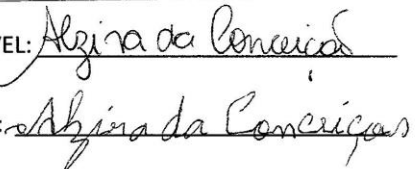 VEL: Alzira da Conceição
: Alzira da Conceiçaõ